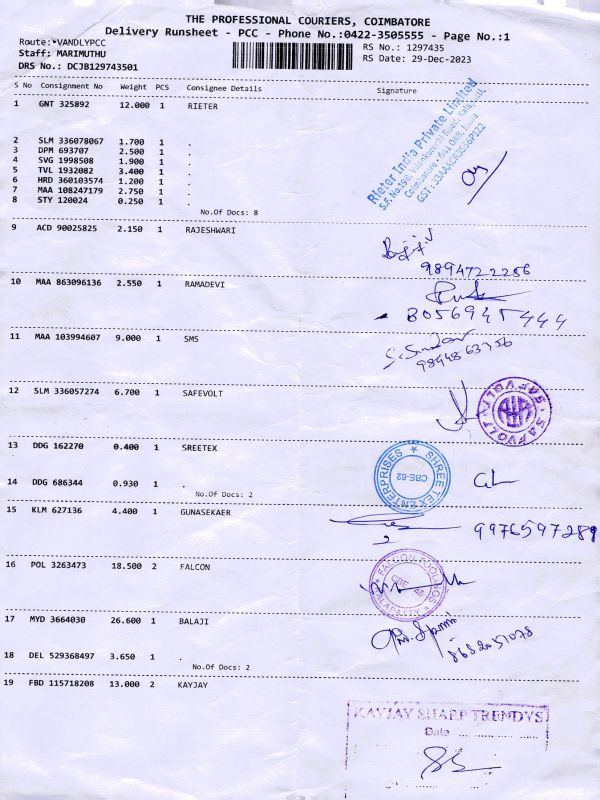 THE PROFESSIONAL COURIERS, COIMBATORE
Delivery Runsheet - PCC - Phone No.:0422-3505555 - Page No.:1
Route:*VANDLYPCC
Staff: MARIMUTHU
DRS No.: DCJB129743501
RS No.: 1297435
RS Date: 29-Dec-2023
S No Consignment No Weight PCS Consignee Details Signature
1 GNT 325892 12.000 1 RIETER
Rieter India Private Limited
Coimbatore - 641 048, India
2 SLM 336078067 1.700 1 .
3 DPM 693707 2.500 1 .
4 SVG 1998508 1.900 1 .
5 TVL 1932082 3.400 1 .
6 HRD 360103574 1.200 1 .
7 MAA 108247179 2.750 1 .
8 STY 120024 0.250 1 .
No.Of Docs: 8
9 ACD 90025825 2.150 1 RAJESHWARI
9894722256
10 MAA 863096136 2.550 1 RAMADEVI
8056945444
11 MAA 103994607 9.000 1 SMS
12 SLM 336057274 6.700 1 SAFEVOLT
SAFVOLT
13 DDG 162270 0.400 1 SREETEX
SHREE TEX ENTERPRISES
CBE-62
14 DDG 686344 0.930 1 .
No.Of Docs: 2
15 KLM 627136 4.400 1 GUNASEKAER
9976597289
16 POL 3263473 18.500 2 FALCON
FALCON TOOLINGS
17 MYD 3664030 26.600 1 BALAJI
8682051078
18 DEL 529368497 3.650 1 .
No.Of Docs: 2
19 FBD 115718208 13.000 2 KAYJAY
KAYJAY SHARP TRENDYS
Date